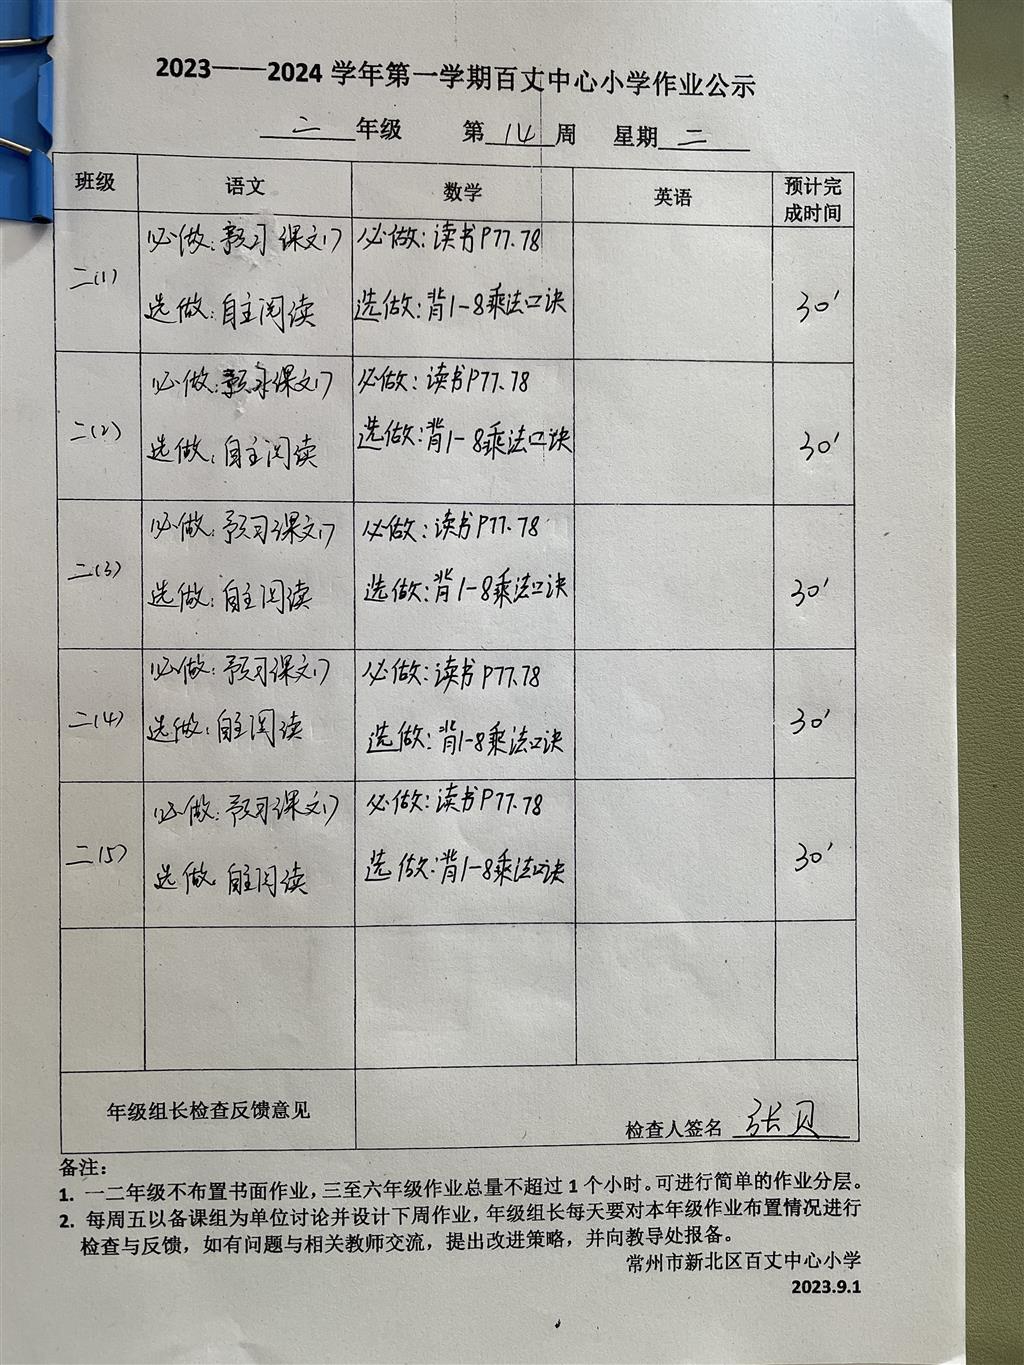 2023——2024 学年第一学期百丈中心小学作业公示
二 年级 第 14 周 星期 二
班级 语文 数学 英语 预计完成时间
二(1)
必做: 预习 课文17
选做: 自主阅读
必做: 读书P77.78
选做: 背1-8乘法口诀
30'
二(2)
必做: 预习课文17
选做: 自主阅读
必做: 读书P77.78
选做: 背1-8乘法口诀
30'
二(3)
必做: 预习课文17
选做: 自主阅读
必做: 读书P77.78
选做: 背1-8乘法口诀
30'
二(4)
必做: 预习课文17
选做: 自主阅读
必做: 读书P77.78
选做: 背1-8乘法口诀
30'
二(5)
必做: 预习课文17
选做 自主阅读
必做: 读书P77.78
选做: 背1-8乘法口诀
30'
年级组长检查反馈意见
检查人签名 张贝
备注:
1. 一二年级不布置书面作业，三至六年级作业总量不超过 1 个小时。可进行简单的作业分层。
2. 每周五以备课组为单位讨论并设计下周作业，年级组长每天要对本年级作业布置情况进行
检查与反馈，如有问题与相关教师交流，提出改进策略，并向教导处报备。
常州市新北区百丈中心小学
2023.9.1